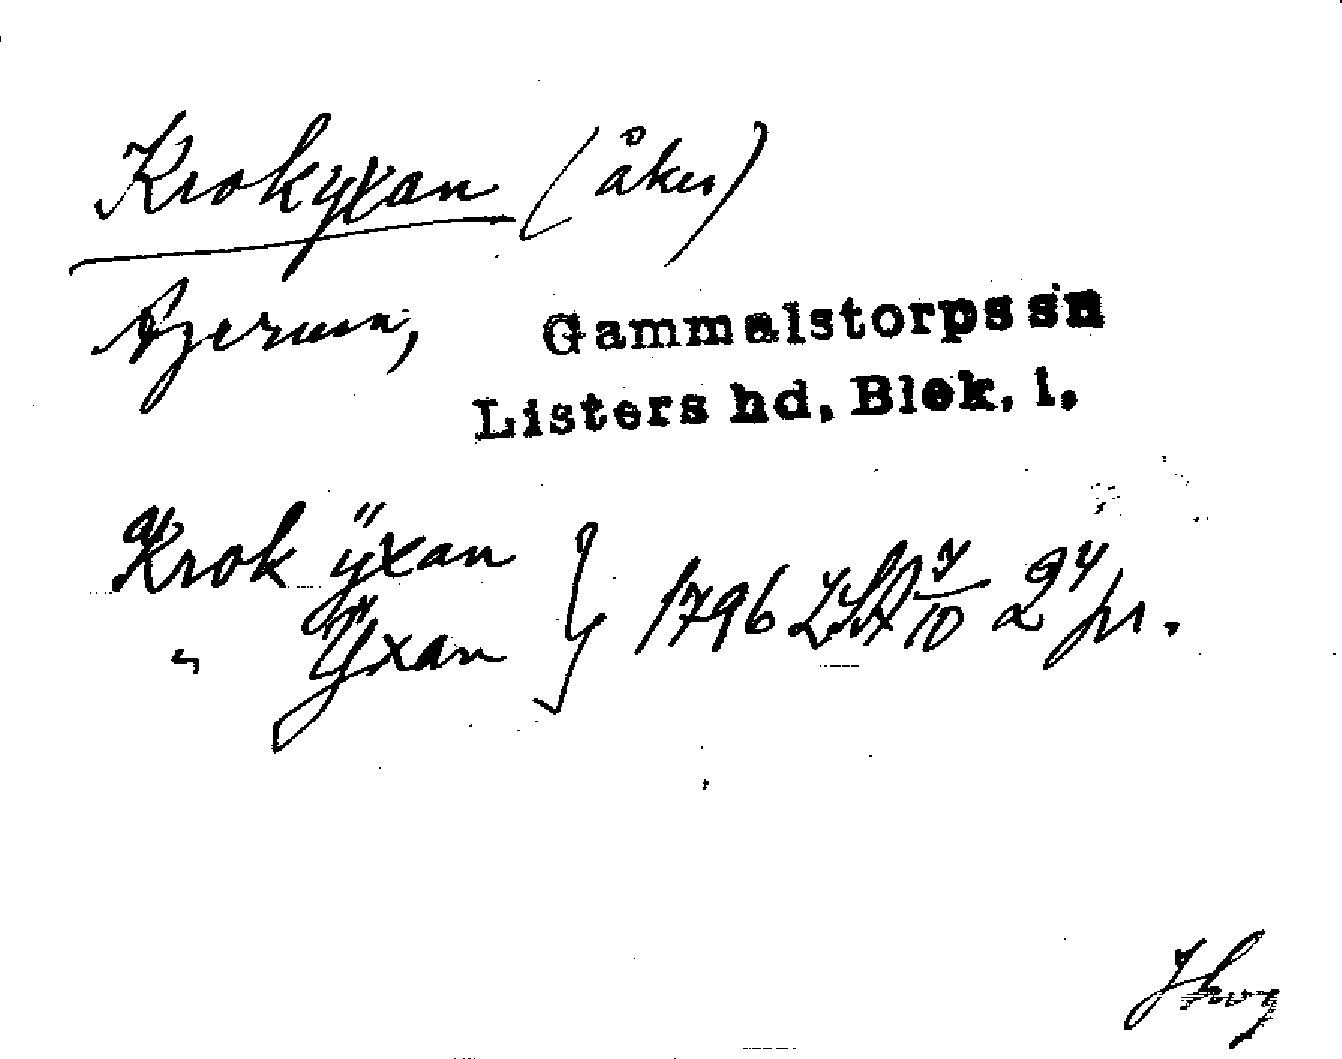 Krokyxan (åker)
Gammalstorps sn
Listers hd, Blek. l.
Krok ÿxan
" Ÿxan } 1796 LSA 7/10 24 pr.